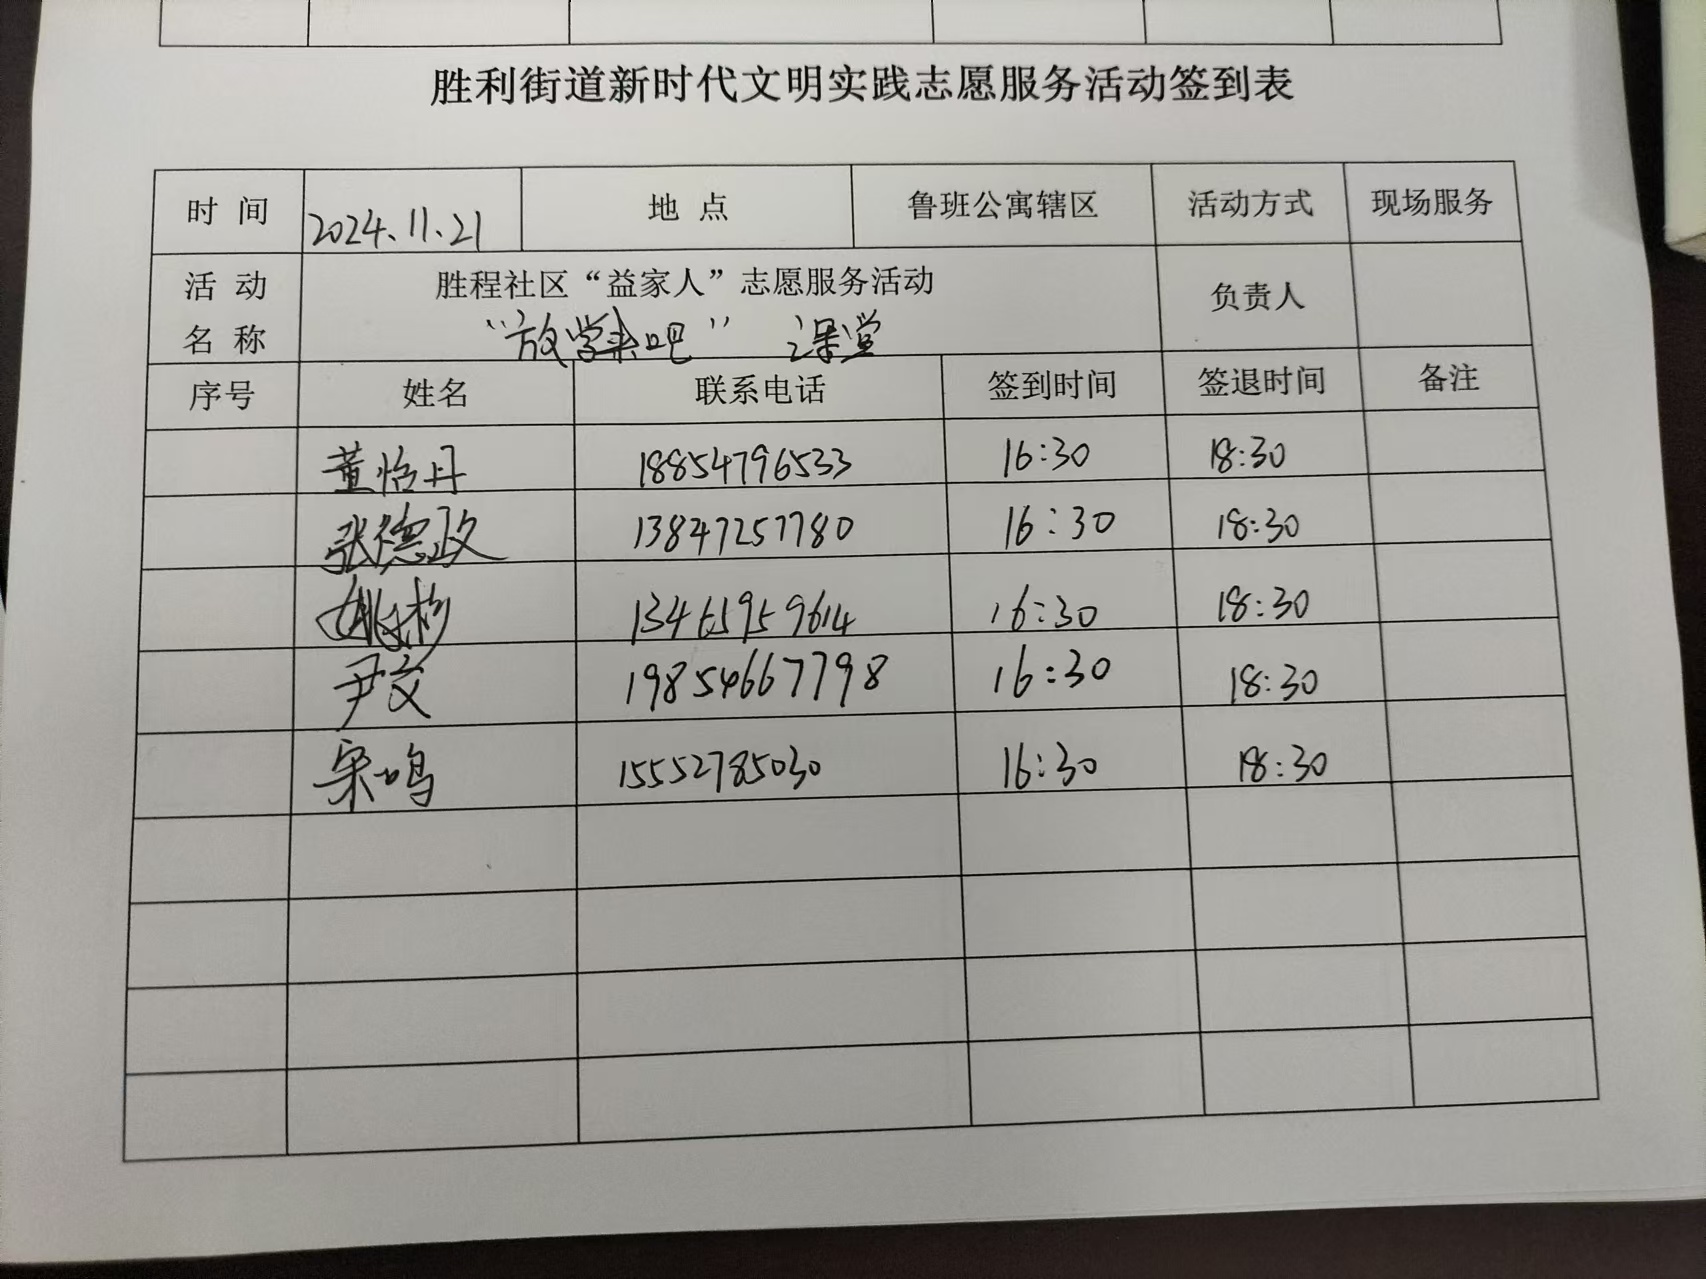 胜利街道新时代文明实践志愿服务活动签到表
时 间 2024.11.21 地 点 鲁班公寓辖区 活动方式 现场服务
活 动 名 称 胜程社区“益家人”志愿服务活动 负责人
“放学来吧” 课堂
序号 姓名 联系电话 签到时间 签退时间 备注
董怡丹 18854796533 16:30 18:30
张德政 13847257780 16:30 18:30
姚彬 13465959614 16:30 18:30
尹文 19854667798 16:30 18:30
宋鸣 15552785030 16:30 18:30